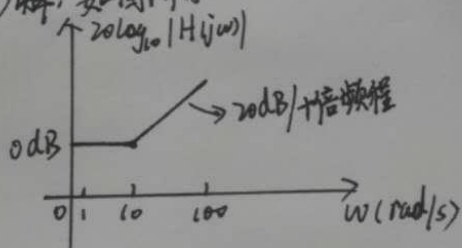 解,如图所示
20log₁₀|H(jω)|
20dB/十倍频程
0dB
0 1 10 100
ω(rad/s)